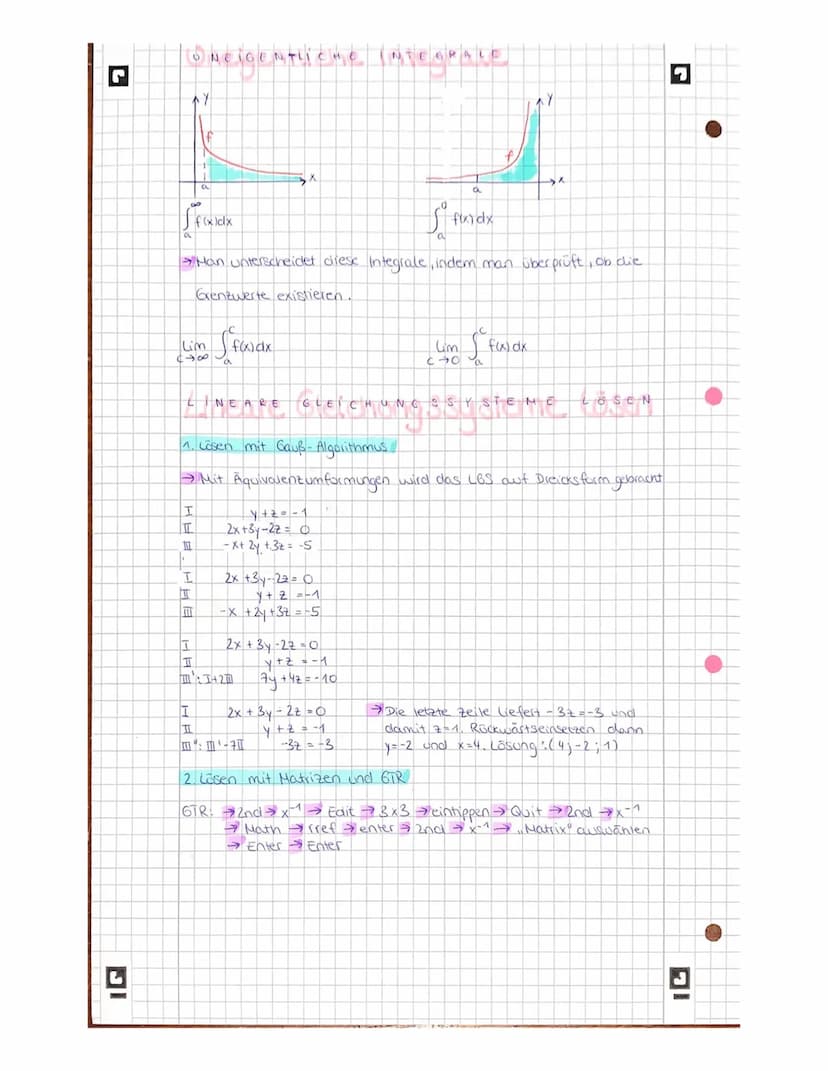 UNEIGENTLICHE INTEGRALE
y
y
f
f
a
x
a
x
∫ₐ^∞ f(x)dx
∫ₐ^0 f(x)dx
→ Man unterscheidet diese Integrale, indem man überprüft, ob die
Grenzwerte existieren.
Lim c→∞ ∫ₐ^c f(x)dx
Lim c→0 ∫ₐ^c f(x)dx
LINEARE GLEICHUNGSSYSTEME LÖSEN
1. Lösen mit Gauß-Algorithmus
→ Mit Äquivalenzumformungen wird das LGS auf Dreicksform gebracht
I y+z=-1
II 2x+3y-2z=0
III -x+2y+3z=-5
I 2x+3y-2z=0
II y+z=-1
III -x+2y+3z=-5
I 2x+3y-2z=0
II y+z=-1
III': I+2III 7y+4z=-10
I 2x+3y-2z=0
II y+z=-1
III": III'-7II -3z=-3
→ Die letzte Zeile liefert -3z=-3 und
damit z=1. Rückwärtseinsetzen dann
y=-2 und x=4. Lösung: (4;-2;1)
2. Lösen mit Matrizen und GTR
GTR: → 2nd → x⁻¹ → Edit → 3x3 → eintippen → Quit → 2nd → x⁻¹
→ Math → rref → enter → 2nd → x⁻¹ → „Matrix" auswählen
→ Enter → Enter